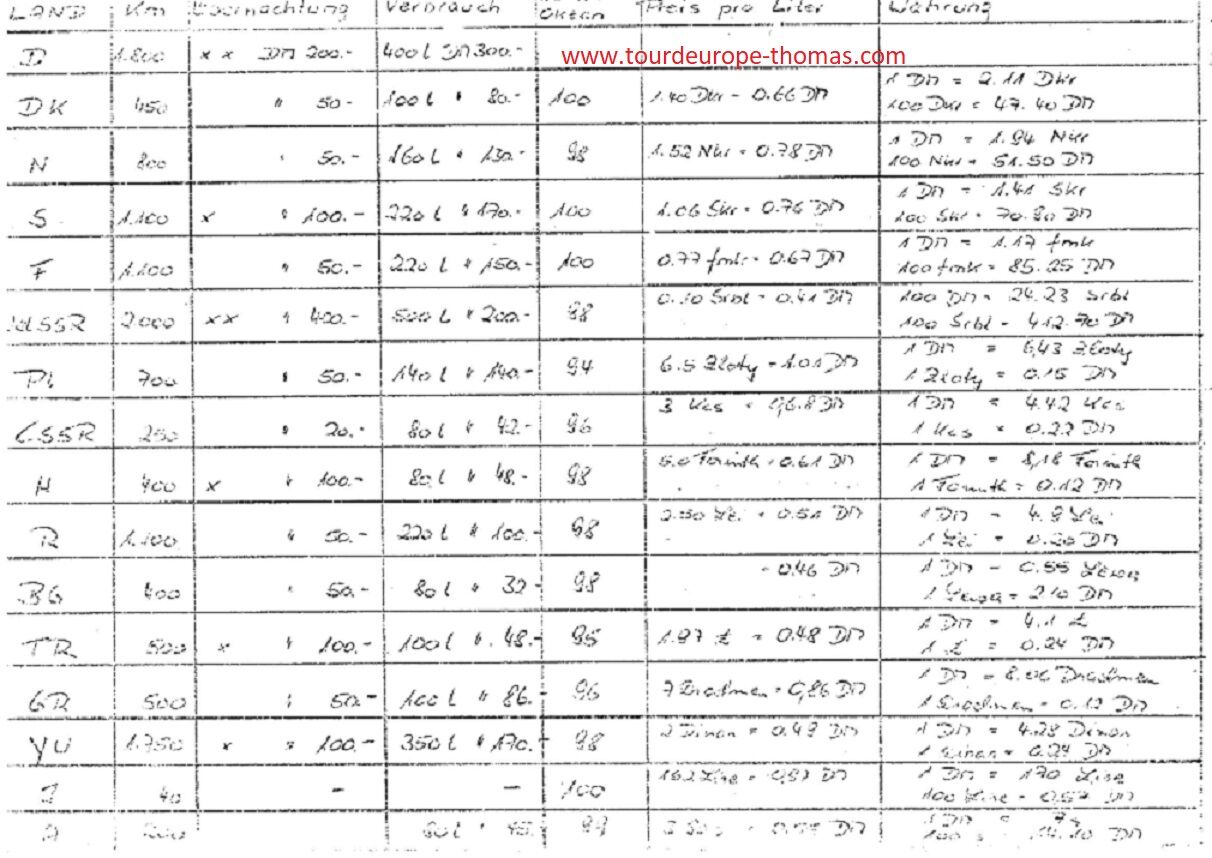 LAND Km Übernachtung Verbrauch Oktan Preis pro Liter Währung
D 1.800 x x DM 200.- 400 l DM 300.-
www.tourdeurope-thomas.com
DK 450 " 50.- 100 l " 80.- 100 1.40 Dkr - 0.66 DM 1 DM = 2.11 Dkr
100 Dkr = 47.40 DM
N 800 " 50.- 160 l " 130.- 98 1.52 Nkr = 0.78 DM 1 DM = 1.94 Nkr
100 Nkr = 51.50 DM
S 1.100 x " 100.- 220 l " 170.- 100 1.06 Skr = 0.76 DM 1 DM = 1.41 Skr
100 Skr = 70.80 DM
F 1.100 " 50.- 220 l " 150.- 100 0.77 fmk = 0.67 DM 1 DM = 1.17 fmk
100 fmk = 85.25 DM
UdSSR 2000 xx " 400.- 500 l " 200.- 98 0.10 Srbl = 0.41 DM 100 DM = 24.23 Srbl
100 Srbl = 412.70 DM
PL 700 " 50.- 140 l " 140.- 94 6.5 Zloty = 1.01 DM 1 DM = 6,43 Zloty
1 Zloty = 0.15 DM
CSSR 250 " 20.- 80 l " 42.- 96 3 Kcs = 0,68 DM 1 DM = 4.42 Kcs
1 Kcs = 0.22 DM
H 400 x " 100.- 80 l " 48.- 98 5.0 Forinth = 0.61 DM 1 DM = 8,18 Forinth
1 Forinth = 0.12 DM
R 1.100 " 50.- 220 l " 100.- 98 2.50 Lei = 0.51 DM 1 DM = 4.9 Lei
1 Lei = 0.20 DM
BG 400 " 50.- 80 l " 32.- 98 - 0.46 DM 1 DM = 0.55 Lewa
1 Lewa = 2.10 DM
TR 500 x " 100.- 100 l " 48.- 95 1.97 £ = 0.48 DM 1 DM = 4.1 £
1 £ = 0.24 DM
GR 500 " 50.- 100 l " 86.- 96 7 Drachmen = 0,86 DM 1 DM = 8.06 Drachmen
1 Drachmen = 0.12 DM
YU 1.750 x " 100.- 350 l " 170.- 98 2 Dinar = 0.49 DM 1 DM = 4.28 Dinar
1 Dinar = 0.24 DM
I 40 - - 100 162 Lire = 0,97 DM 1 DM = 170 Lire
100 Lire = 0,57 DM
80 l DM 1 DM =